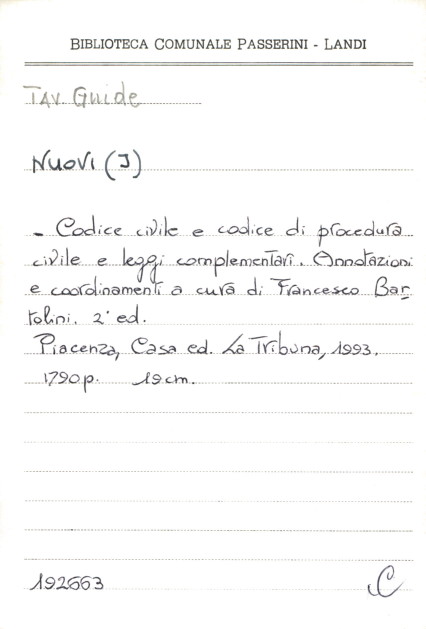 BIBLIOTECA COMUNALE PASSERINI - LANDI
TAV. Guide
NUOVI (I)
- Codice civile e codice di procedura
civile e leggi complementari. Annotazioni
e coordinamenti a cura di Francesco Bar-
tolini. 2ª ed.
Piacenza, Casa ed. La Tribuna, 1993.
1790 p. 19 cm.
192663
C